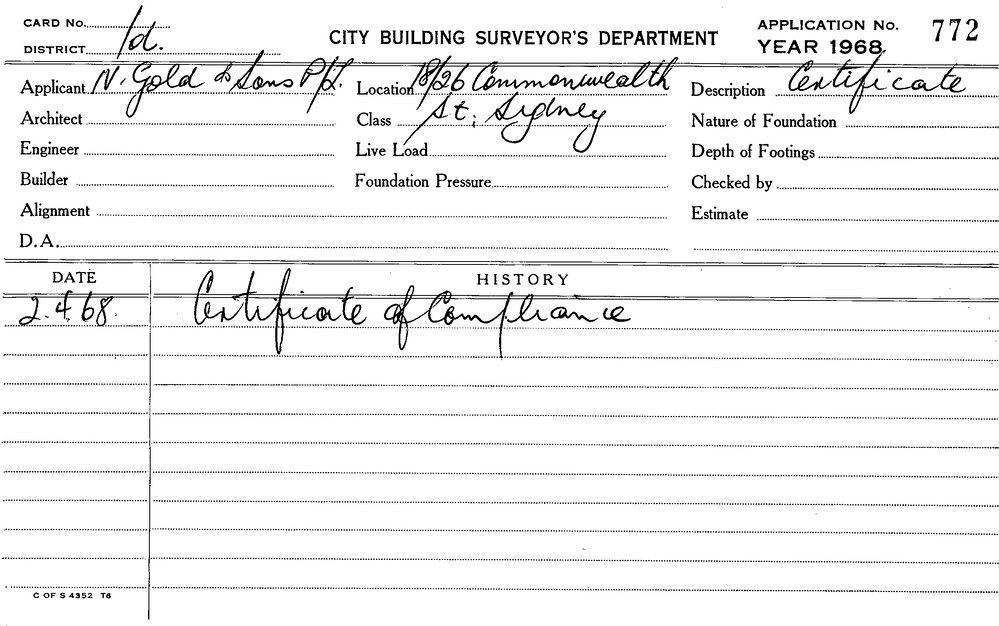 CARD No.
DISTRICT 1d.
CITY BUILDING SURVEYOR'S DEPARTMENT
APPLICATION No. 772
YEAR 1968.
Applicant N. Gold & Sons P/L. Location 18/26 Commonwealth Description Certificate
Architect Class St. Sydney Nature of Foundation
Engineer Live Load Depth of Footings
Builder Foundation Pressure Checked by
Alignment Estimate
D.A.
DATE HISTORY
2.4.68. Certificate of Compliance
C OF S 4352 T6